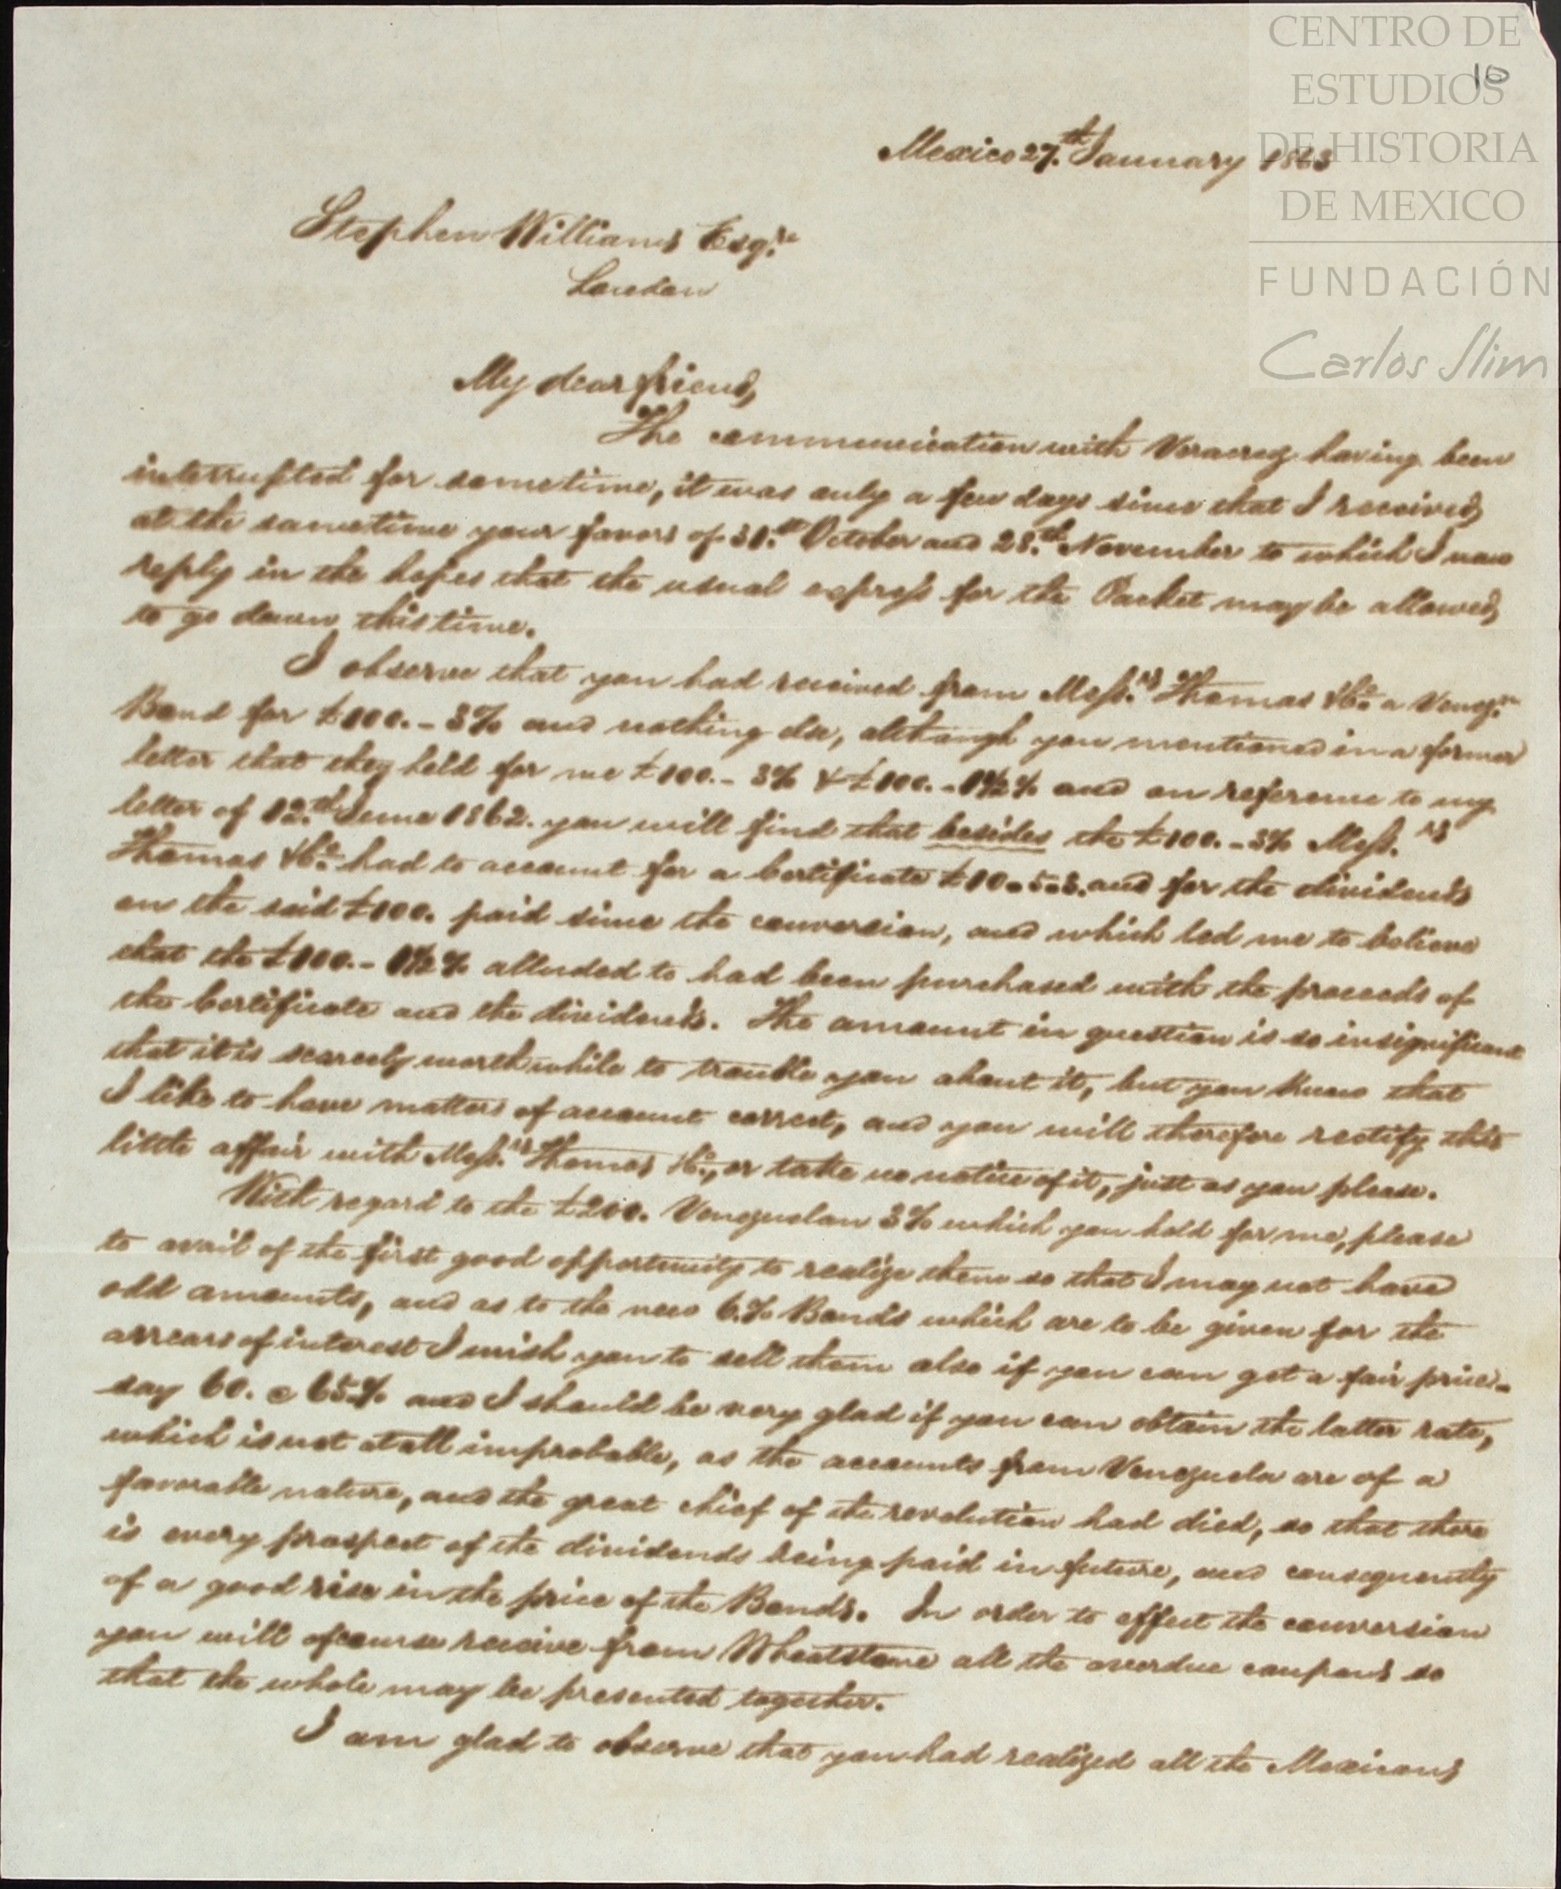 CENTRO DE
ESTUDIOS
DE HISTORIA
DE MEXICO
FUNDACIÓN
Carlos Slim
10
Mexico 27.th January 1863
Stephen Williams Esqre
London
My dear friend,
The communication with Veracruz having been
interrupted for sometime, it was only a few days since that I received
at the same time your favors of 31.st October and 28.th November to which I now
reply in the hopes that the usual express for the Packet may be allowed
to go down this time.
I observe that you had received from Mess.rs Thomas & Co. a Venezn
Bond for £100.- 3% and nothing else, although you mentioned in a former
letter that they held for me £100.- 3% & £100.- 1½% and on reference to my
letter of 12.th June 1862. you will find that besides the £100.- 3% Mess.rs
Thomas & Co. had to account for a Certificate £10.5.3. and for the dividends
on the said £100. paid since the conversion, and which led me to believe
that the £100.- 1½% alluded to had been purchased with the proceeds of
the Certificate and the dividends. The amount in question is so insignificant
that it is scarcely worth while to trouble you about it, but you know that
I like to have matters of account correct, and you will therefore rectify this
little affair with Mess.rs Thomas & Co., or take no notice of it, just as you please.
With regard to the £200. Venezuelan 3% which you hold for me, please
to avail of the first good opportunity to realize them so that I may not have
odd amounts, and as to the new 6% Bonds which are to be given for the
arrears of interest I wish you to sell them also if you can get a fair price -
say 60. @ 65% and I should be very glad if you can obtain the latter rate,
which is not at all improbable, as the accounts from Venezuela are of a
favorable nature, and the great chief of the revolution had died, so that there
is every prospect of the dividends being paid in future, and consequently
of a good rise in the price of the Bonds. In order to effect the conversion
you will of course receive from Wheatstone all the overdue coupons so
that the whole may be presented together.
I am glad to observe that you had realized all the Mexicans